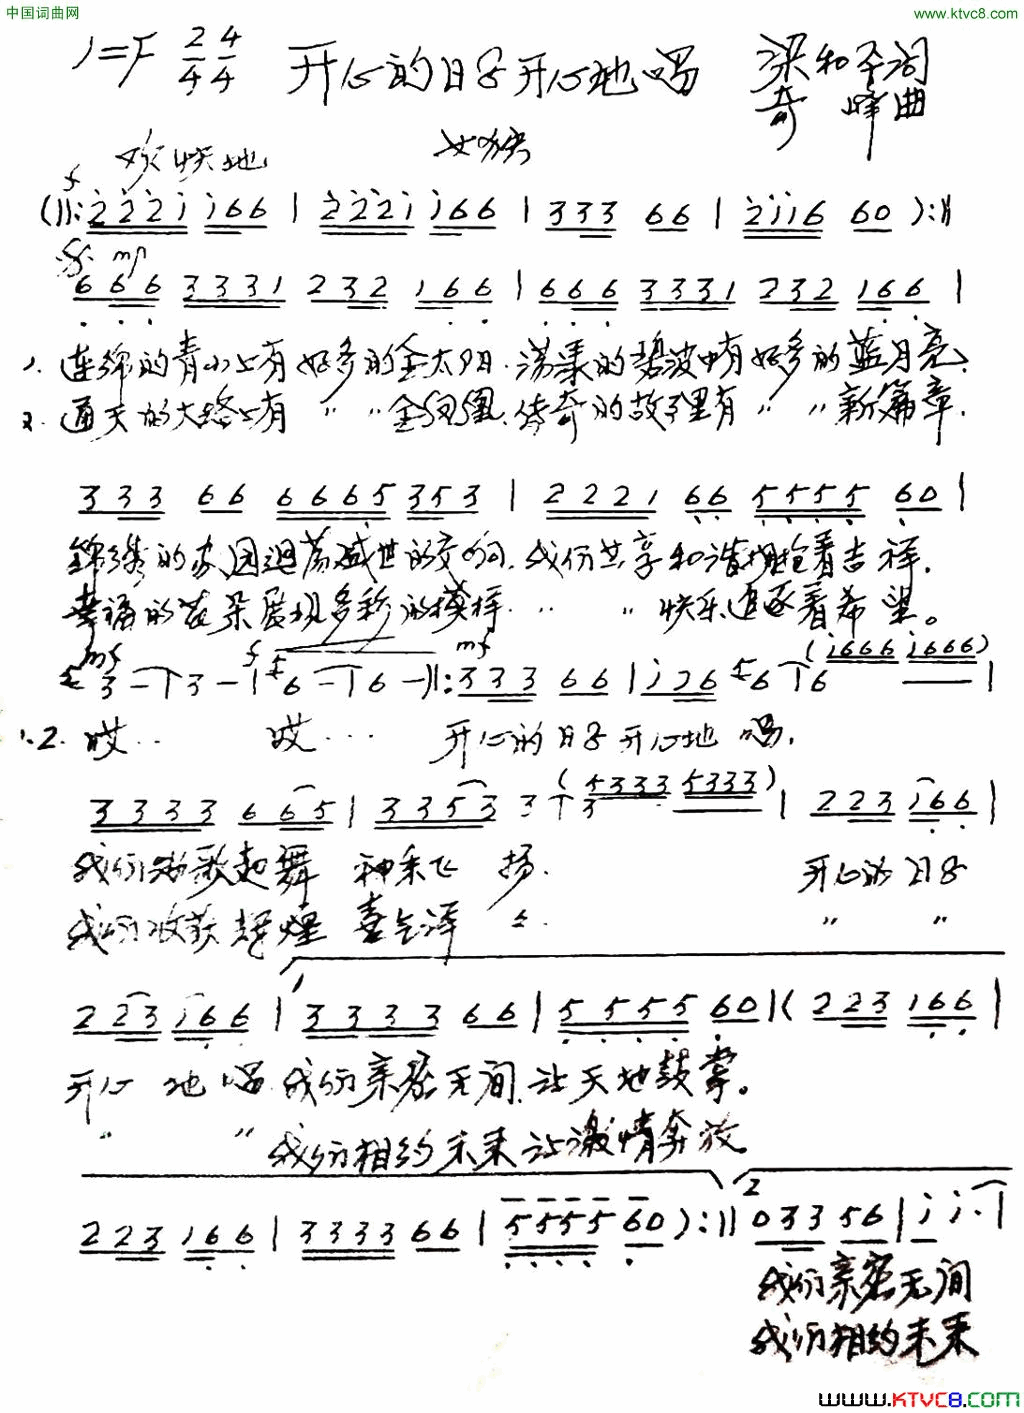 中国词曲网 www.ktvc8.com
1=F 2/4 4/4 开心的日子开心地唱 梁和平词
奇峰曲
欢快地 女独
f
(‖: 2̇2̇2̇1̇ 1̇66 | 2̇2̇2̇1̇ 1̇66 | 333 66 | 2̇1̇1̇6 60 ):‖
mf
666 3331 232 166 | 666 3331 232 166 |
1. 连绵的青山上有好多的金太阳.荡漾的碧波中有好多的蓝月亮.
2. 通天的大路上有 〃 〃 金凤凰.传奇的故事里有 〃 〃 新篇章.
333 66 6665 353 | 2221 66 5555 60 |
锦绣的家园迴荡盛世的交响.我们共享和谐拥抱着吉祥.
幸福的花朵展现多彩的模样. 〃 〃 快乐追逐着希望。
mf f mf (1̇666 1̇666)
3 - | 3 - | 6 - | 6 - ‖: 333 66 | 1̇26 56 | 6 |
1.2. 哎… 哎… 开心的日子开心地 唱.
(5333 5333)
3333 665 | 3353 3 | 3 | 223 1̇66 |
我们放歌起舞 神采飞 扬. 开心的 日子
我们收获辉煌 喜气洋 〃. 〃 〃
1
223 1̇66 | 3333 66 | 5555 60 | ( 223 166 |
开心 地 唱.我们亲密无间.让天地鼓掌。
〃 〃 我们相约未来让激情奔放
2
223 166 | 3333 66 | 5555 60 ):‖ 033 56 | 1̇ 1̇. |
我们亲密无间
我们相约未来
www.KTVC8.com